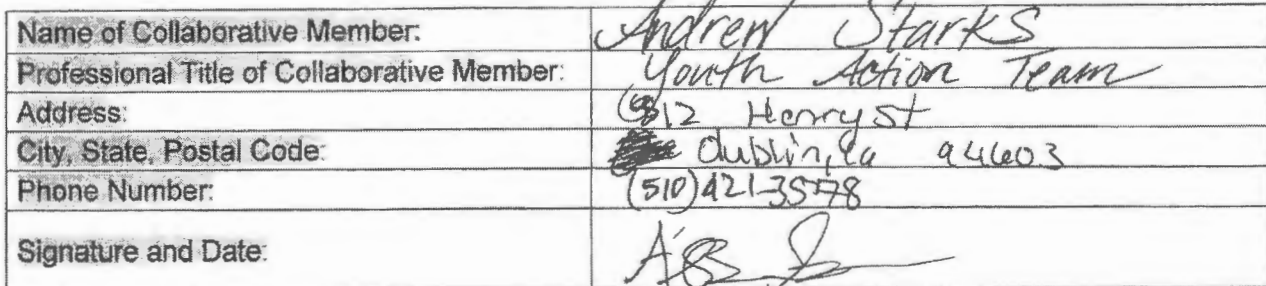 Name of Collaborative Member: Andrew Starks
Professional Title of Collaborative Member: Youth Action Team
Address: Henry st
City, State, Postal Code: dublin, ca 94603
Phone Number: (510)421-3578
Signature and Date: